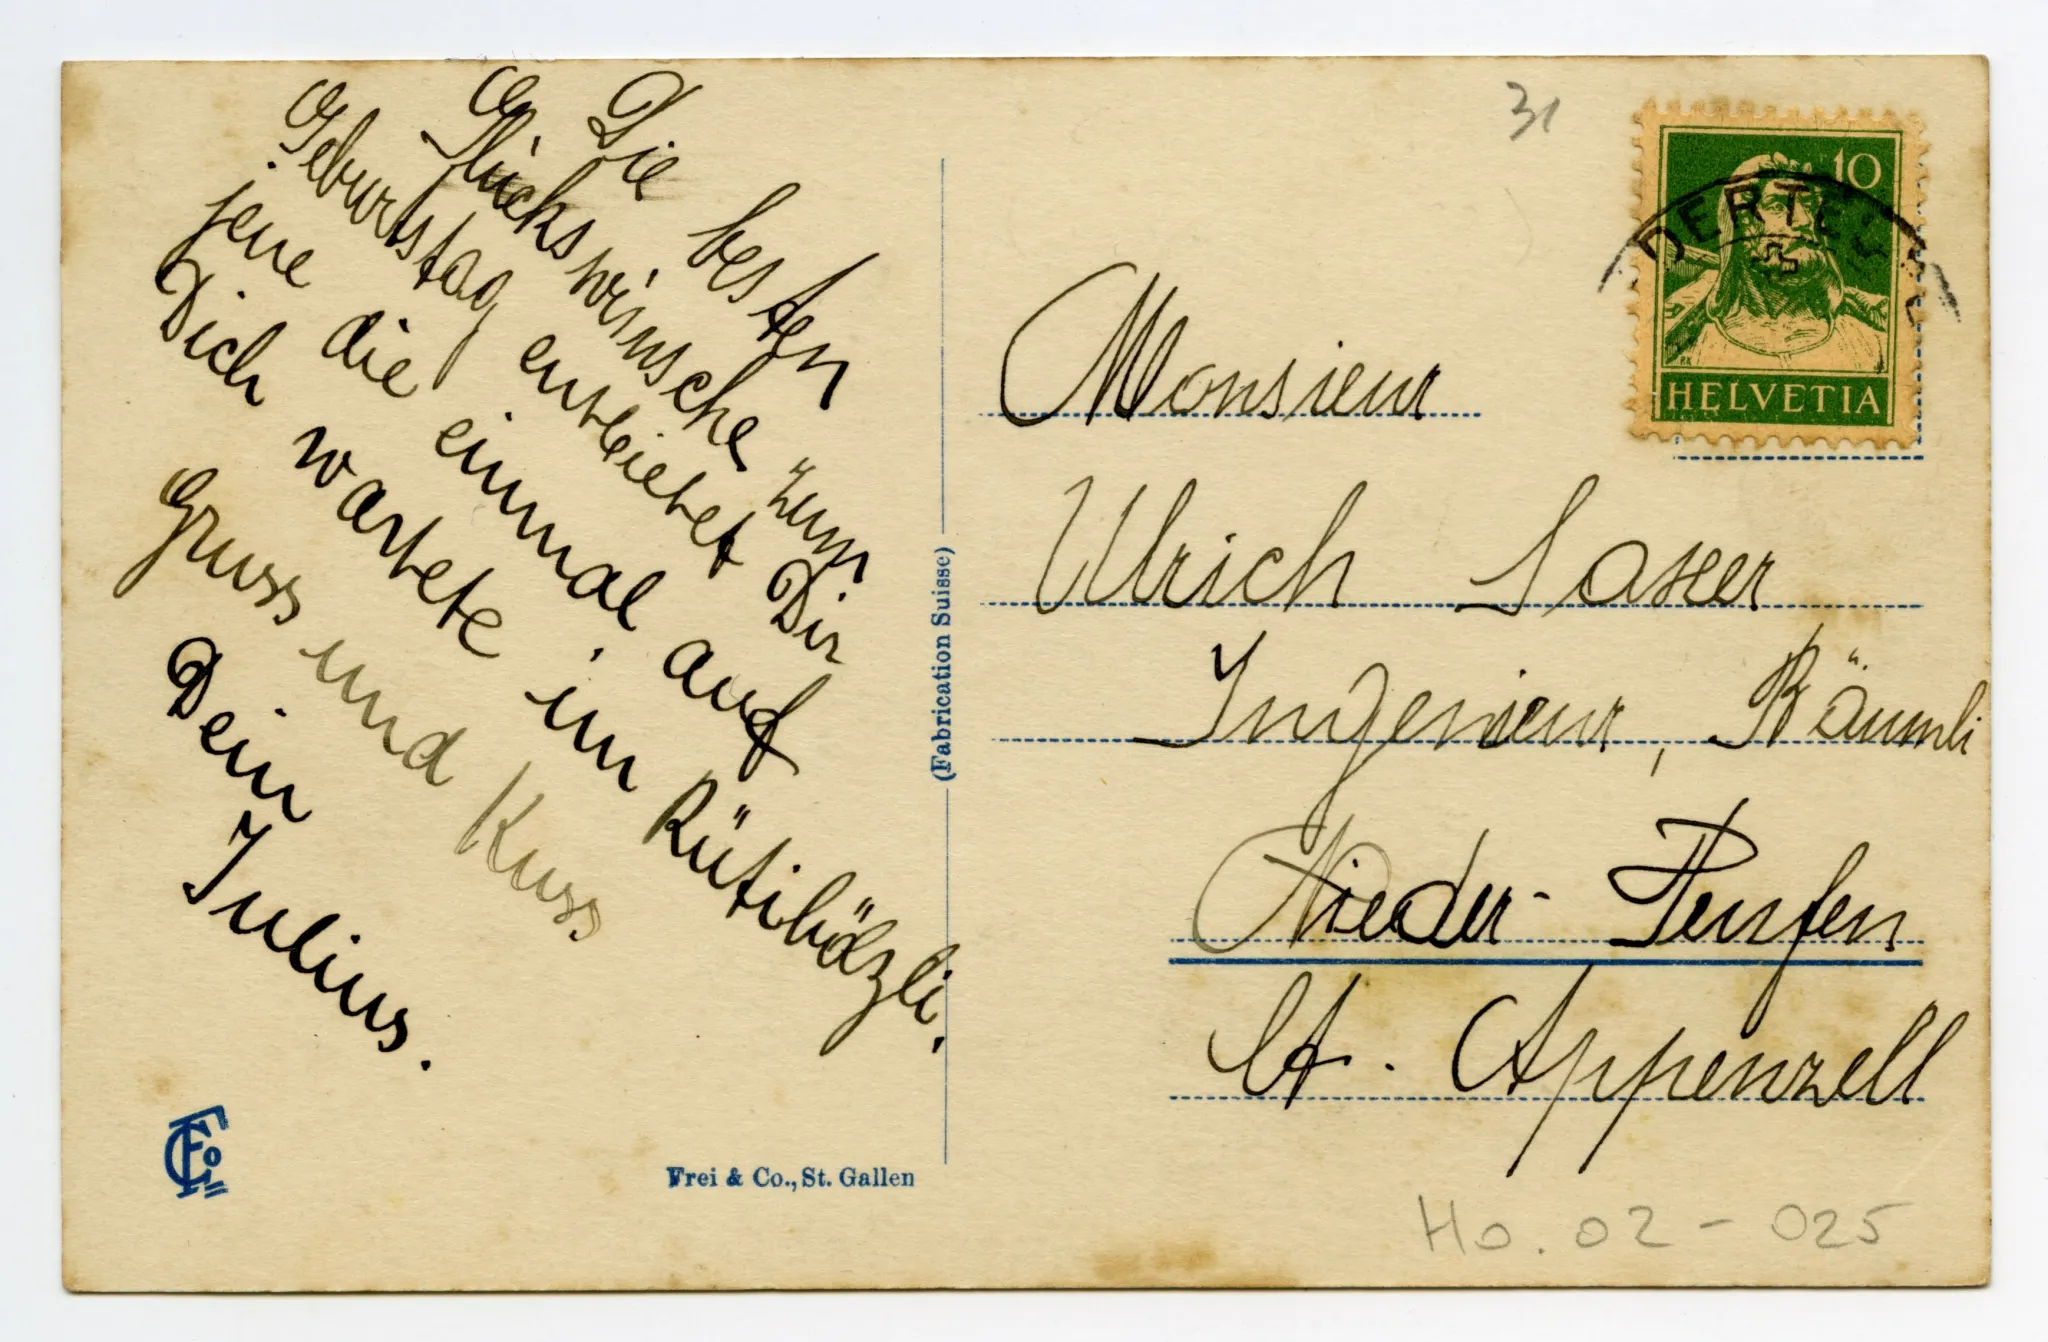 Die besten
Glückswünsche zum
Geburtstag entbietet Dir
jene die einmal auf
Dich wartete im Rütihölzli,
Gruss und Kuss
Dein
Julius.
Frei & Co., St. Gallen
(Fabrication Suisse)
31
10
HELVETIA
Monsieur
Ulrich Saxer
Ingenieur, Bäumli
Nieder-Teufen
Ct. Appenzell
Ho. 02 - 025